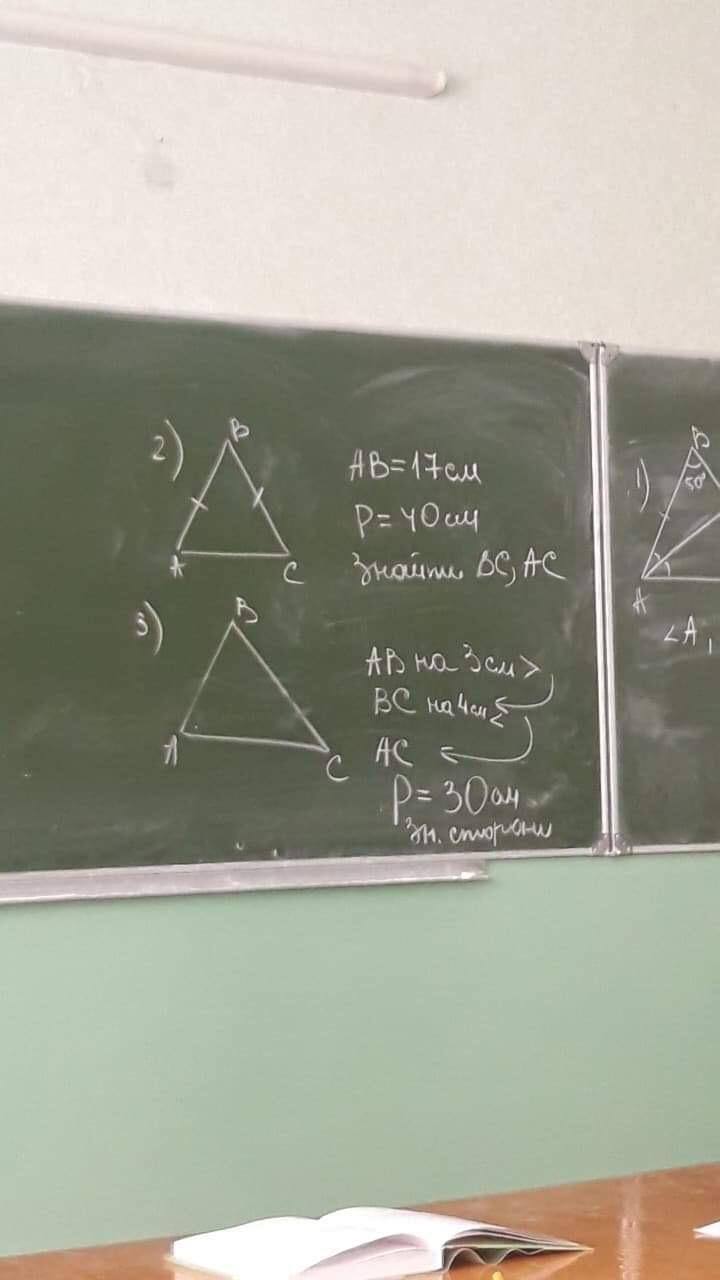 2)
B
A
C
AB=17см
P=40см
Знайти BC, AC
3)
B
A
C
AB на 3см >
BC на 4см <
AC
P=30см
Зн. сторони
1)
B
50°
A
<A,